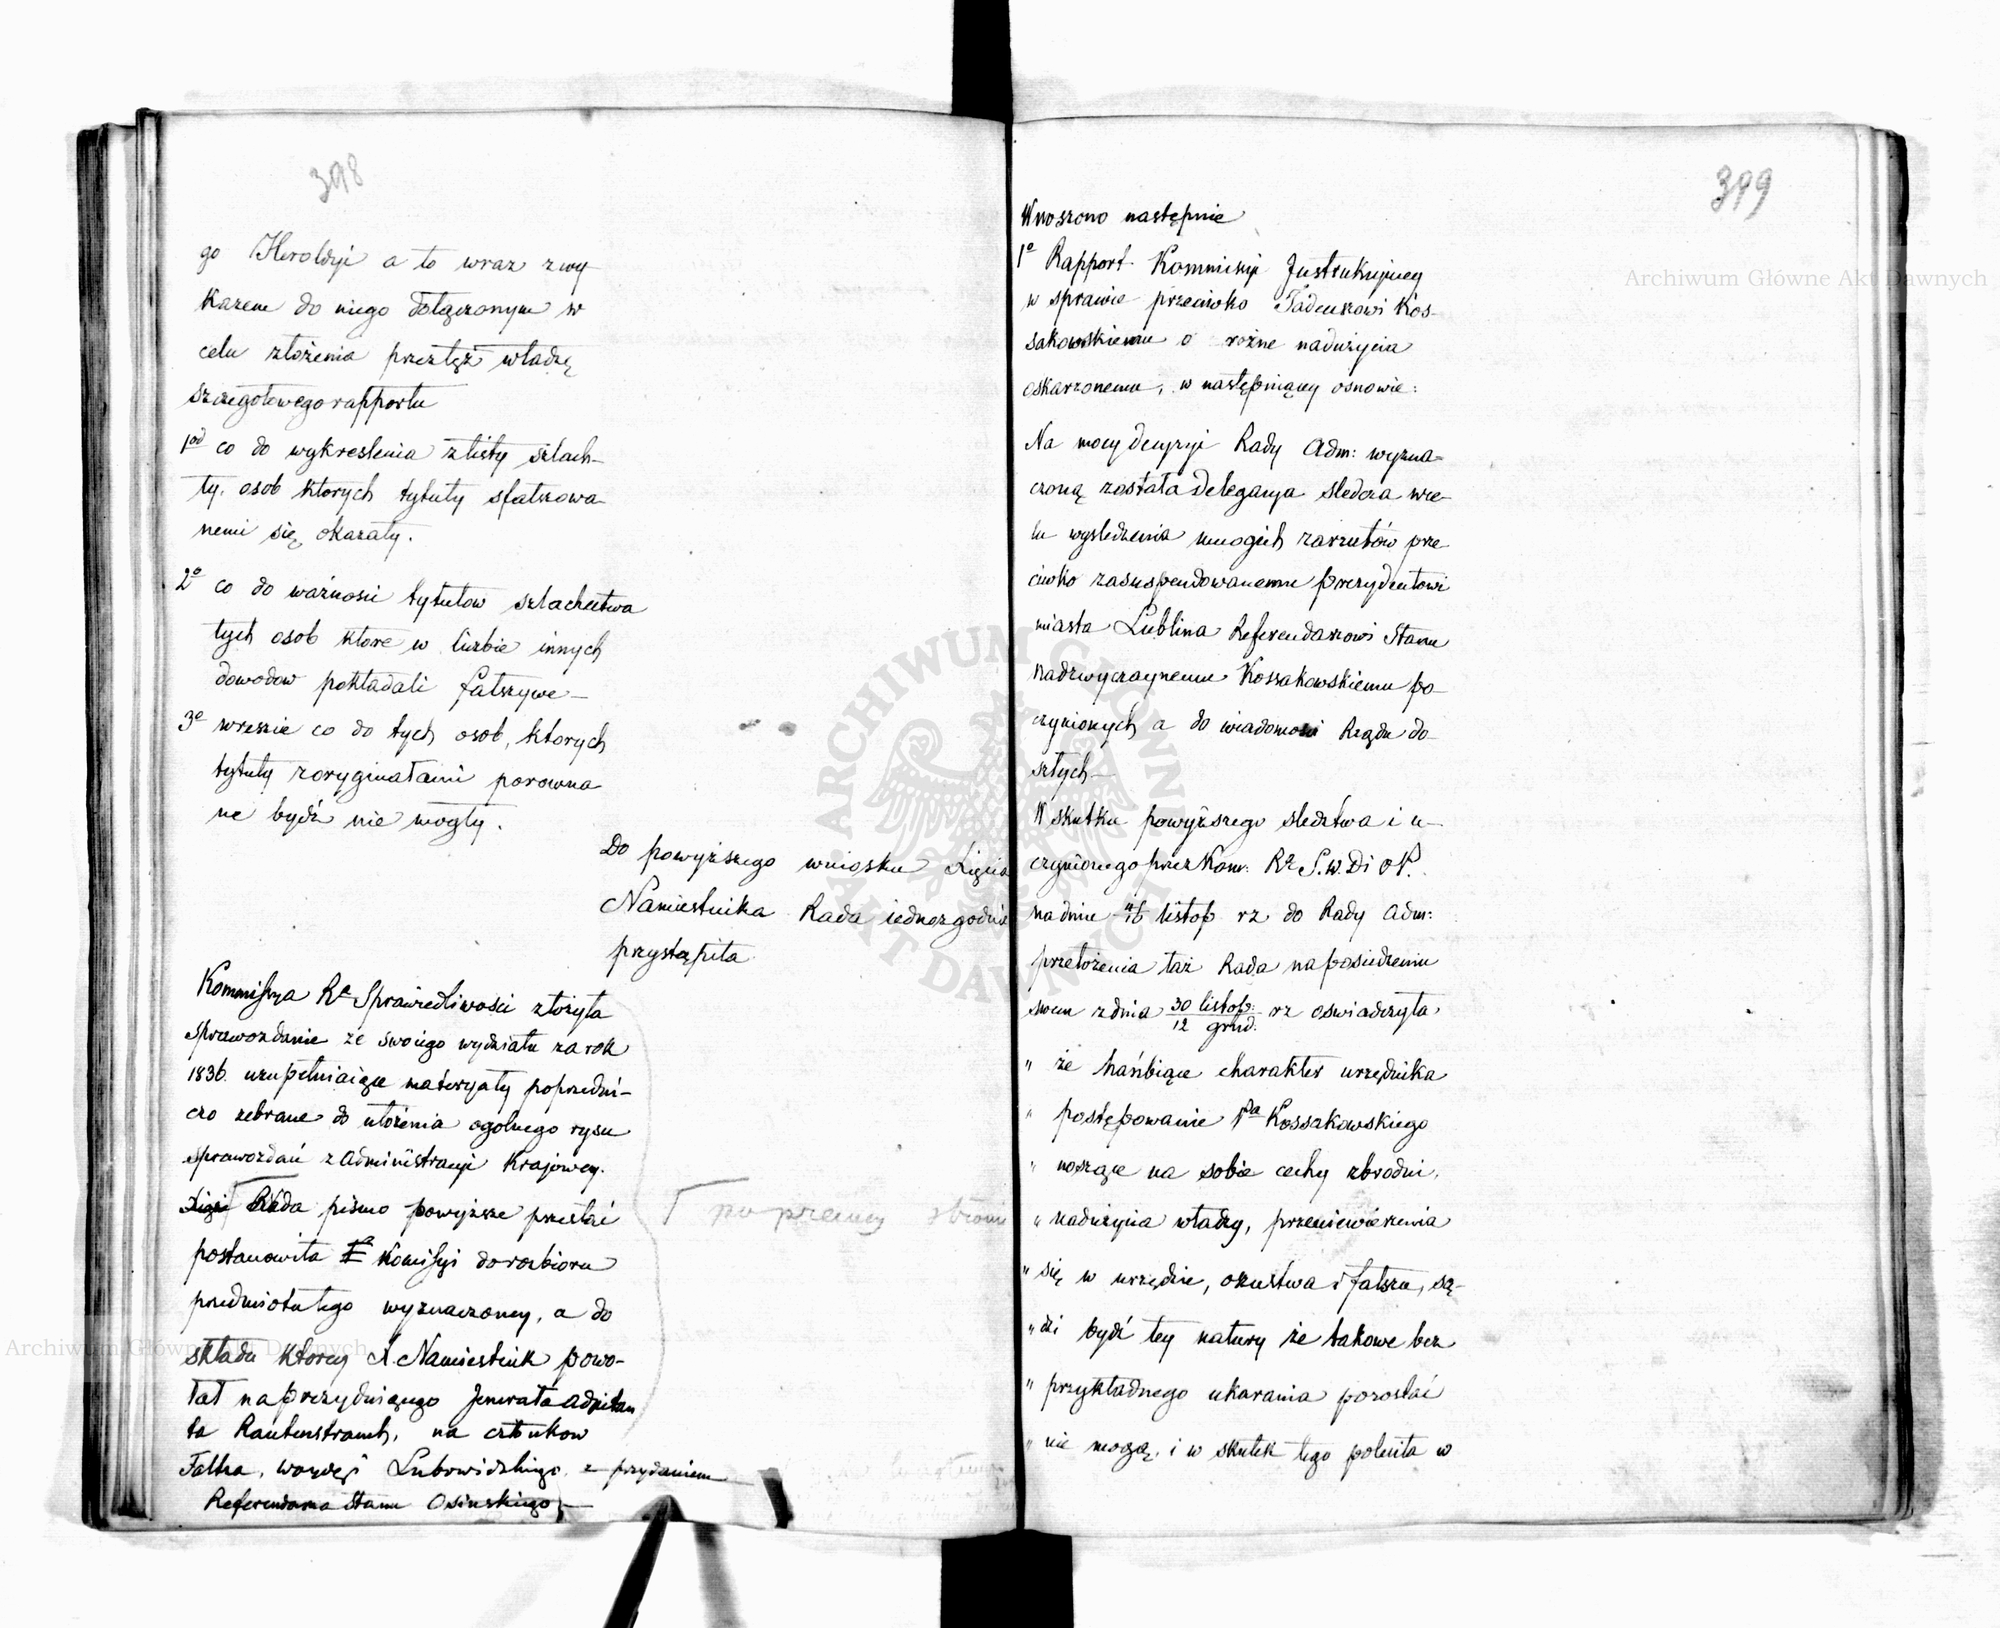 398
go Heroldyi a to wraz z wy
kazem do niego dołączonym w
celu złożenia przez tęż władzę
szczegołowego rapportu
1od co do wykreslenia z listy szlach-
ty, osob ktorych tytuły sfałszowa
nemi się okazały.
2o co do ważnosci tytułow szlachectwa
tych osob ktore w liczbie innych
dowodow pokładali fałszywe –
3o wreszcie co do tych osob, ktorych
tytuły z oryginałami porowna
ne bydź nie mogły.
Do powyższego wniosku Xięcia
Namiestnika Rada iednozgodnie
przystąpiła
Kommissya Ra Sprawiedliwosci złożyła
sprawozdanie ze swoiego wydziału za rok
1836. uzupełniaiące materyały poprzedni-
czo zebrane do ułożenia ogolnego rysu
sprawozdań z administracyi Krajowey.
Rada pismo powyższe przesłać
postanowiła Komissyi do rozbioru
przedmiotu tego wyznaczoney, a do
składu ktorey X. Namiestnik powo-
łał na prezyduiącego Jenerała Adjutan
ta Rautenstrauch, na członkow
Faltza, Lubowidzkiego, z przydaniem
Referendarza Stanu Osinskiego –
Γ po prawey stronie
399
Wnoszono następnie
1o Rapport Kommissyi Instrukcyjney
w sprawie przeciwko Tadeuszowi Kos-
sakowskiemu o rożne nadużycia
oskarzonemu, w następuiącey osnowie:
Na mocy decyzyi Rady Adm: wyzna=
czoną została Delegacya sledcza w ce-
lu wysledzenia mnogich zarzutów prze
ciwko zasuspendowanemu prezydentowi
miasta Lublina Referendarzowi Stanu
Nadzwyczaynemu Kossakowskiemu po-
czynionych a do wiadomosci Rządu do-
szłych –
W skutku powyższego sledztwa i u-
czynionego przez Kom: Rz S. w. D i O P.
na dniu 4/16 listop rz do Rady Adm:
przełożenia taż Rada na posiedzeniu
swem z dnia 30 listop:/12 grud. rz oswiadczyła,
„ że hańbiące charakter urzędnika
„ postępowanie Pa Kossakowskiego
„ noszące na sobie cechy zbrodni,
„ nadużycia władzy, przeniewierzenia
„ się w urzędzie, oszustwa i fałszu, są-
„ dzi bydź tey natury że takowe bez
„ przykładnego ukarania pozostać
„ nie mogą, i w skutek tego poleciła w